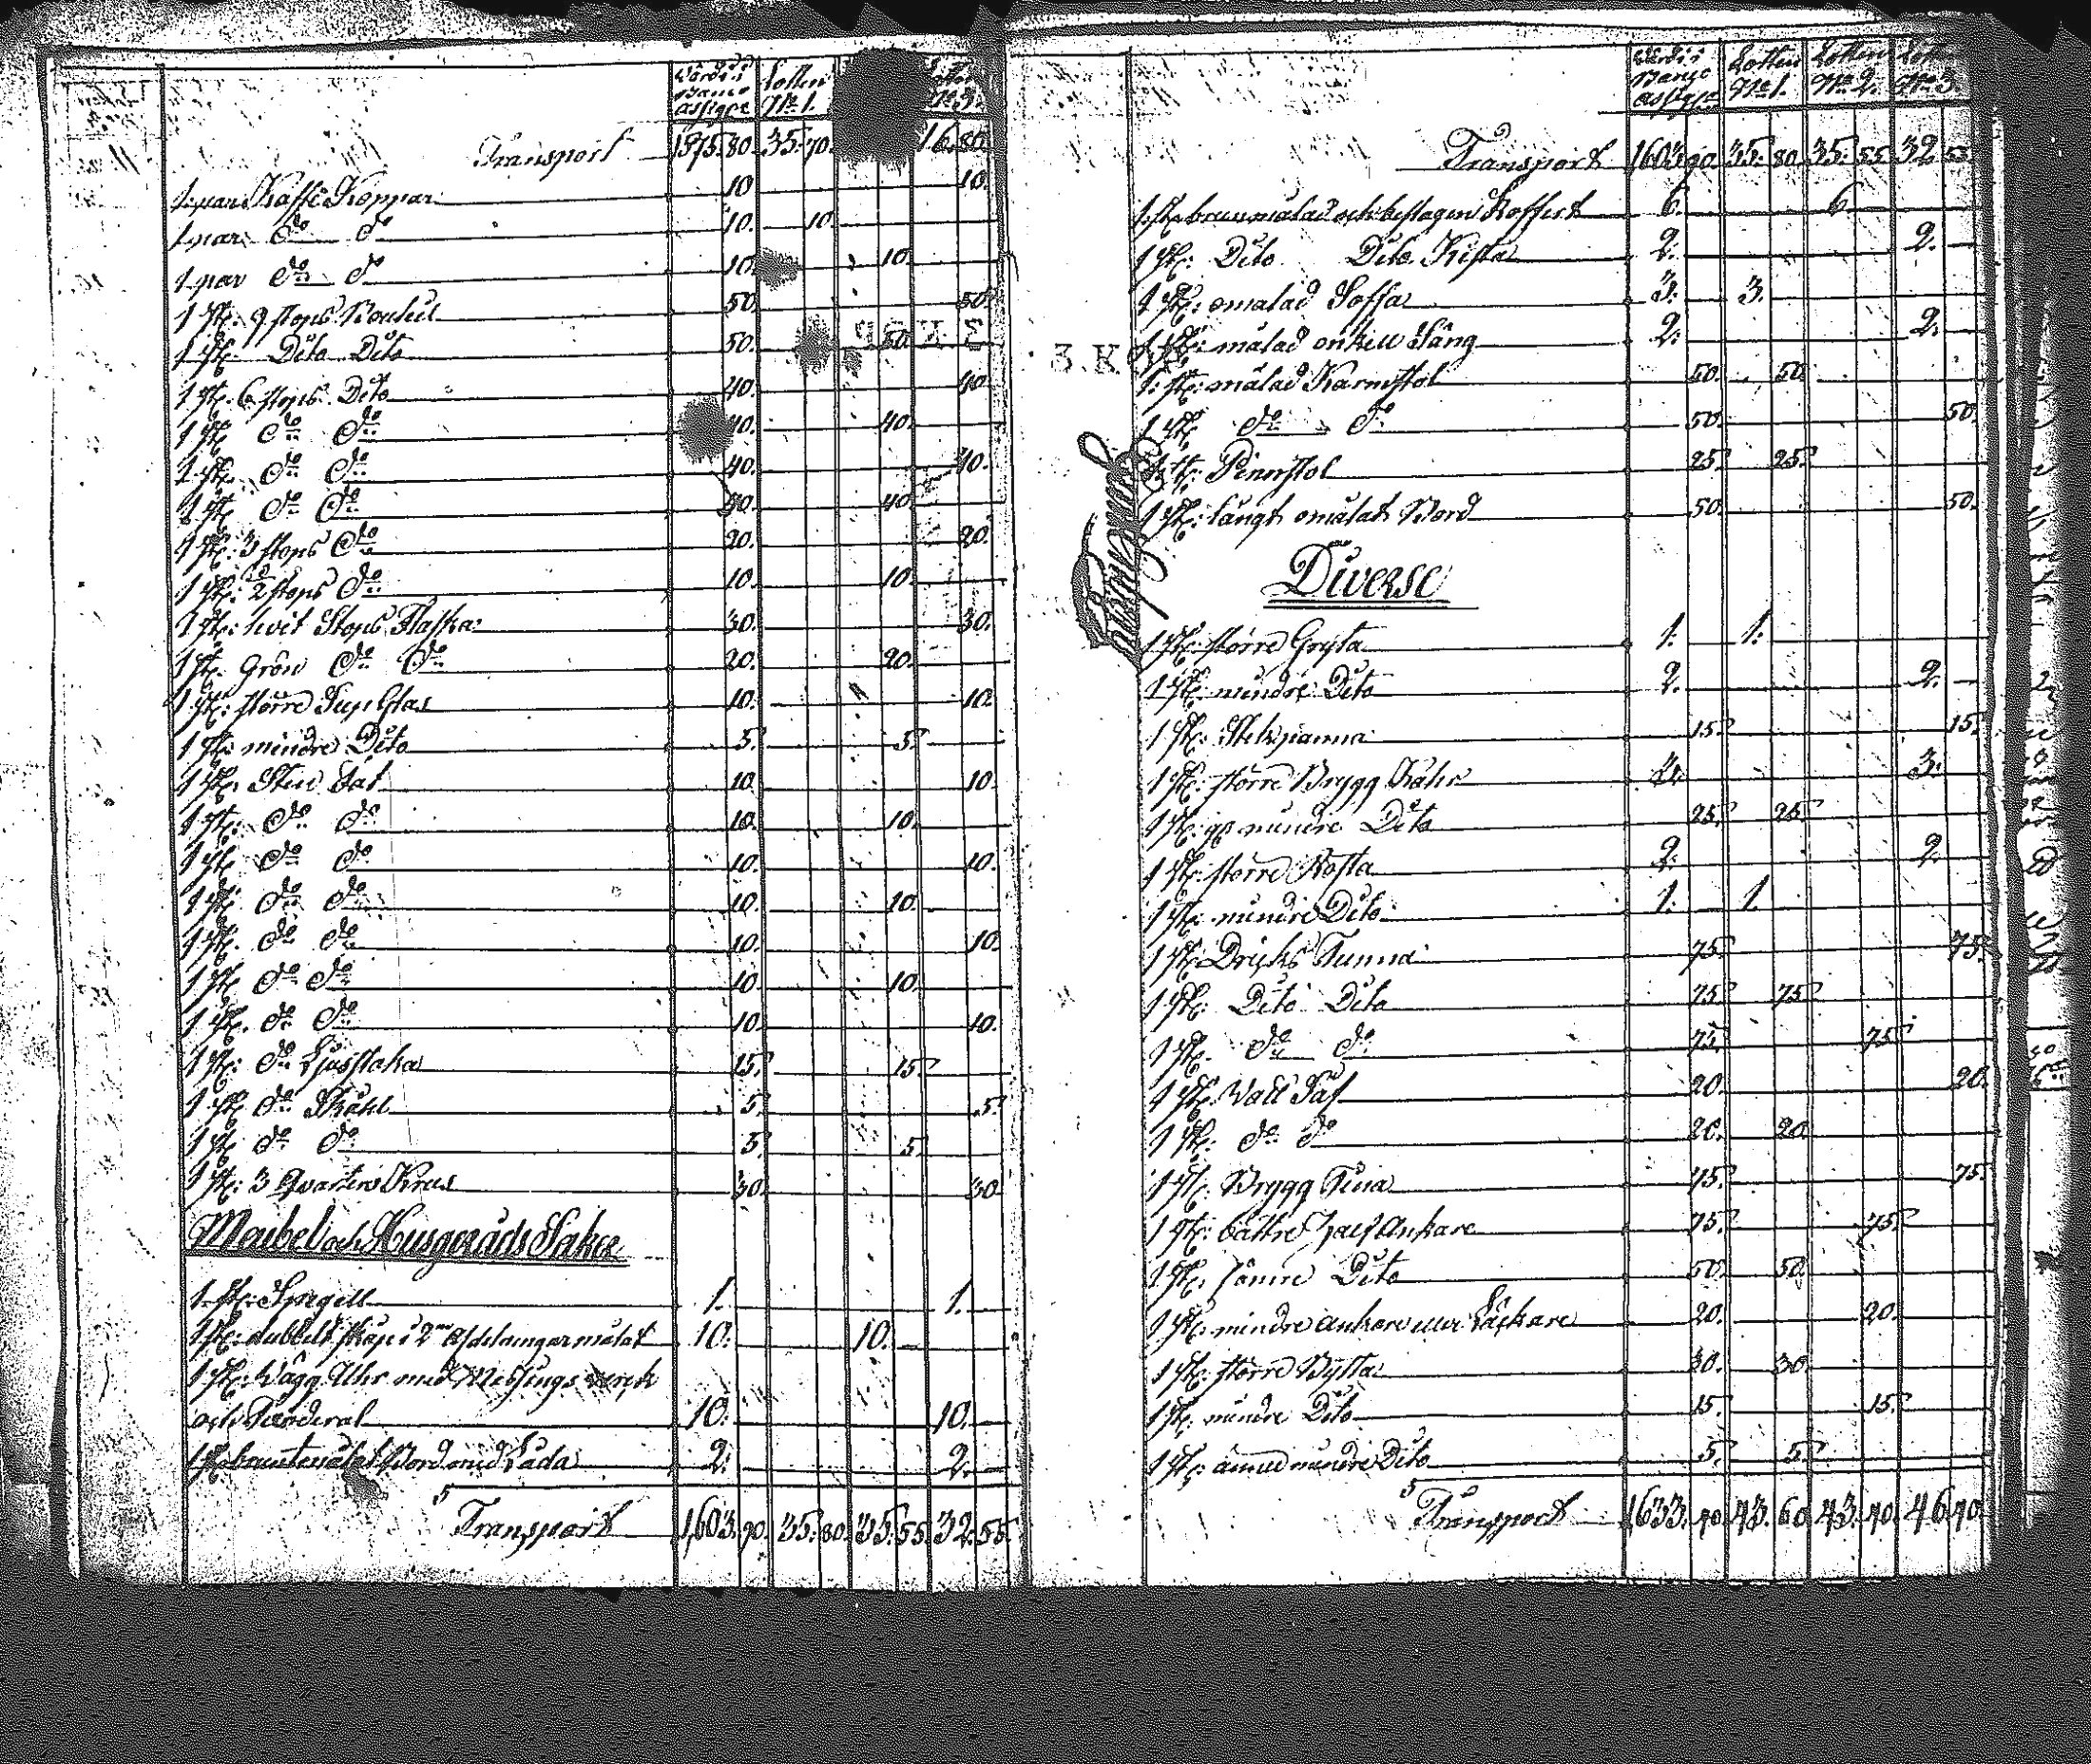 Wärde i Banco Assigne Lotten No 1. No 3.
Transport 1575. 80. 35. 70. 16. 80.
1 par Kaffe Koppar 10 10.
1 par do do 10. 10.
1 par do do 10. 10.
1 St: 9 stops Boutel 50. 50.
1 St: Dito Dito 50. 50
1 St: 6 stops Dito 40. 40.
1 St: do do 40. 40.
1 St: do do 40. 40.
1 St: do do 40. 40.
1 St: 3 stops do 20. 20.
1 St: 2 stops do 10. 10.
1 St: hvit Stops Flaska 30. 30.
1 St: Grön do do 20. 20.
1 St: större Sup Glas 10. 10.
1 St: mindre Dito 5. 5.
1 St: Sten Fat 10. 10.
1 St: do do 10. 10.
1 St: do do 10. 10.
1 St: do do 10. 10.
1 St: do do 10. 10.
1 St: do do 10. 10.
1 St: do do 10. 10.
1 St: do Ljusstaka 15. 15.
1 St: do Skåhl 5. 5.
1 St: do do 5. 5.
1 St: 3 Qvarters Krus 30. 30
Meubel och Husgeråds Saker
1 St: Spegell 1. 1.
1 St: dubbelt skåp i 2ne afdelningar målat 10. 10.
1 St: Wägg Uhr med Messings verck
och Foderal 10. 10.
1 St: bruntmålat Bord med Låda 2. 2.
Transport 1603. 90. 35. 80. 35. 55. 32. 55.
Wärde i Banco Assigne Lotten No 1. Lotten No 2. Lotten No 3.
Transport 1603. 90 35. 80 35. 55 32. 55.
1 St: brunmålad och beslagen Koffert 6. 6.
1 St: Dito Dito Kista 2. 2.
1 St: omålad Soffa 3. 3.
1 St: målad enkell Säng 2. 2.
1 St: målad Karmstol 50. 50
1 St: do do 50. 50.
1 St: Pinnstol 25. 25.
1 St: långt omålat Bord 50. 50.
Diverse
1 St: större Gryta 1. 1.
1 St: mindre Dito 2. 2.
1 St: Stekpanna 15. 15.
1 St: större Brygg Såhe 3. 3.
1 St: mindre Dito 25. 25.
1 St: större 2. 2.
1 St: mindre Dito 1. 1.
1 St: Dricks Tunna 75. 75.
1 St: Dito Dito 75. 75
1 St: do do 75. 75
1 St: Wall Fat 20. 20.
1 St: do do 20. 20
1 St: Brygg Tina 75. 75.
1 St: bättre half Ankare 75. 75.
1 St: sämre Dito 50. 50
1 St: mindre ankare 20. 20.
1 St: större Bytta 30. 30
1 St: mindre Dito 15. 15.
1 St: ännu mindre Dito 5. 5.
Transport 1633. 70. 43. 60 43. 40. 46. 70.